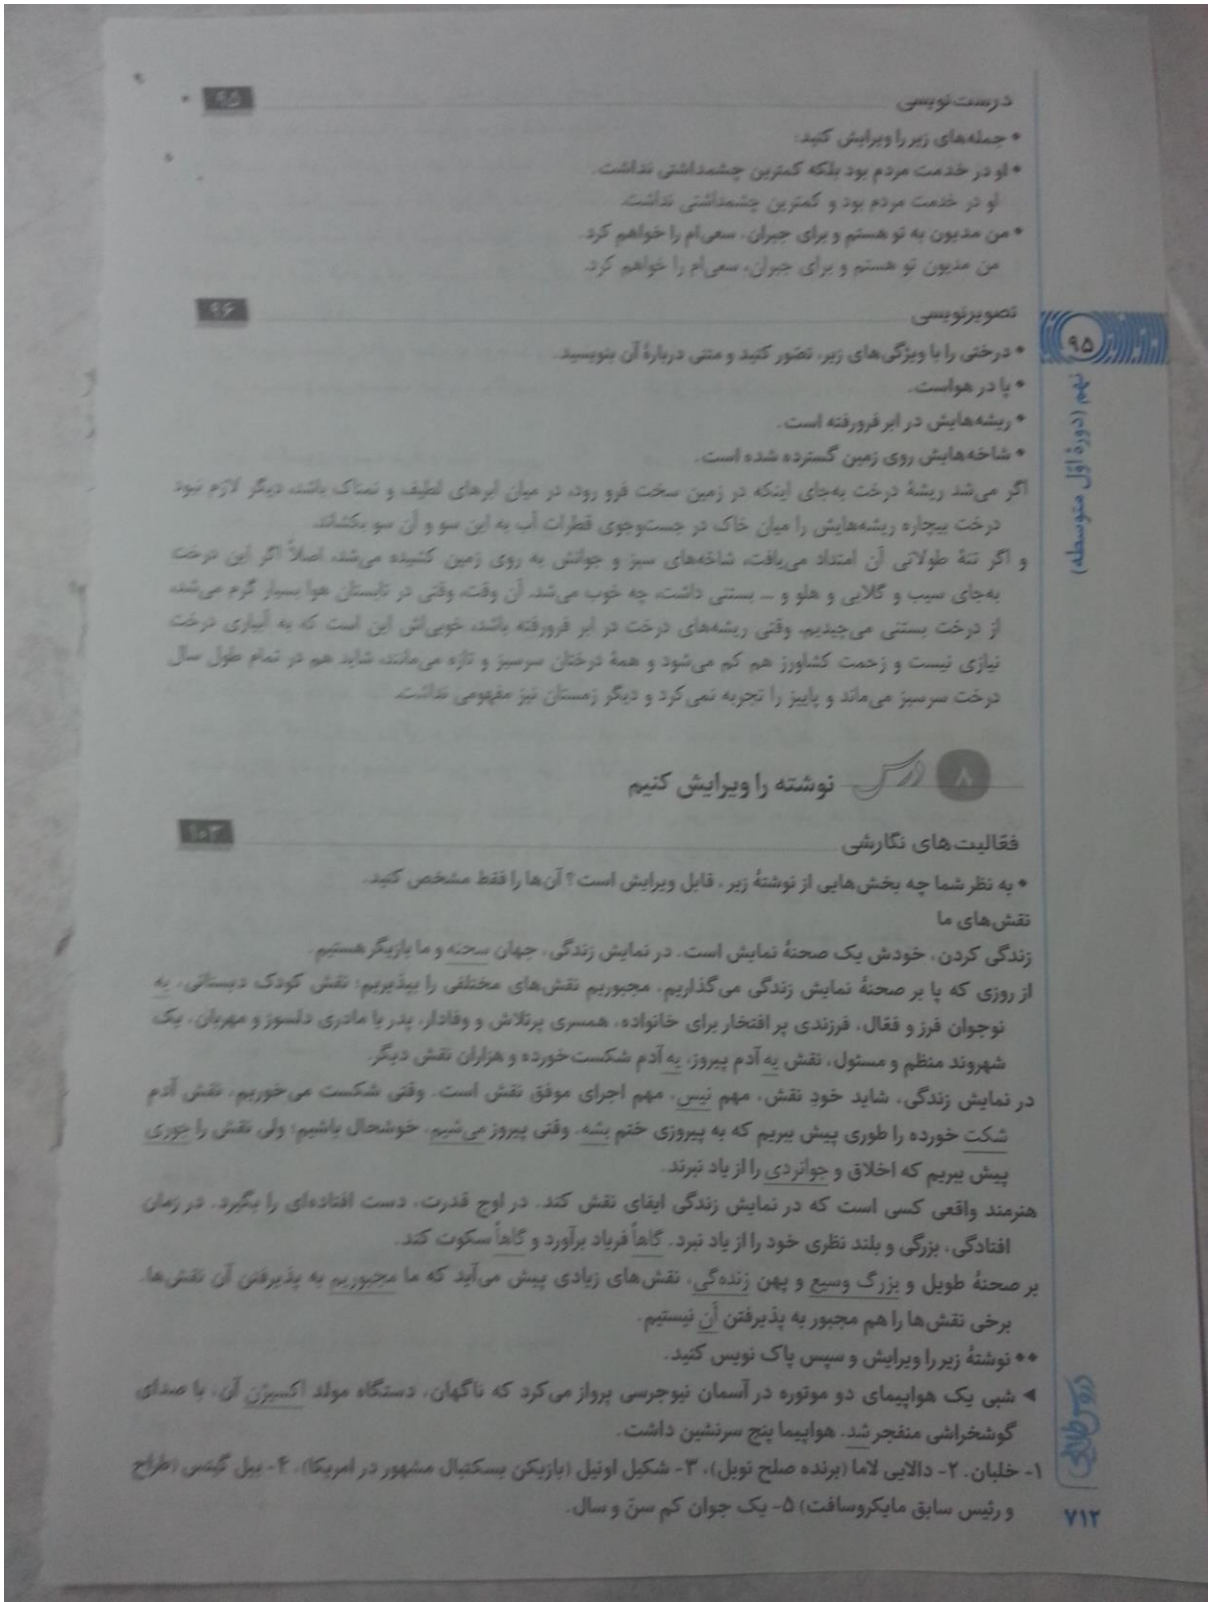 درست‌نویسی ۹۵
• جمله‌های زیر را ویرایش کنید:
• او در خدمت مردم بود بلکه کمترین چشمداشتی نداشت.
او در خدمت مردم بود و کمترین چشمداشتی نداشت.
• من مدیون به تو هستم و برای جبران، سعی‌ام را خواهم کرد.
من مدیون تو هستم و برای جبران، سعی‌ام را خواهم کرد.
تصویرنویسی ۹۶
• درختی را با ویژگی‌های زیر، تصّور کنید و متنی دربارهٔ آن بنویسید.
• پا در هواست.
• ریشه‌هایش در ابر فرورفته است.
• شاخه‌هایش روی زمین گسترده شده است.
اگر می‌شد ریشهٔ درخت به‌جای اینکه در زمین سخت فرو رود، در میان ابرهای لطیف و نمناک باشد، دیگر لازم نبود
درخت بیچاره ریشه‌هایش را میان خاک در جست‌وجوی قطرات آب به این سو و آن سو بکشاند.
و اگر تنهٔ طولانی آن امتداد می‌یافت، شاخه‌های سبز و جوانش به روی زمین کشیده می‌شد، اصلاً اگر این درخت
به‌جای سیب و گلابی و هلو و ... بستنی داشت، چه خوب می‌شد. آن وقت، وقتی در تابستان هوا بسیار گرم می‌شد،
از درخت بستنی می‌چیدیم. وقتی ریشه‌های درخت در ابر فرورفته باشد، خوبی‌اش این است که به آبیاری درخت
نیازی نیست و زحمت کشاورز هم کم می‌شود و همهٔ درختان سرسبز و تازه می‌مانند، شاید هم در تمام طول سال
درخت سرسبز می‌ماند و پاییز را تجربه نمی‌کرد و دیگر زمستان نیز مفهومی نداشت.
درس ۸ نوشته را ویرایش کنیم
فعّالیت‌های نگارشی ۱۰۳
• به نظر شما چه بخش‌هایی از نوشتهٔ زیر، قابل ویرایش است؟ آن‌ها را فقط مشخص کنید.
نقش‌های ما
زندگی کردن، خودش یک صحنهٔ نمایش است. در نمایش زندگی، جهان سحنه و ما بازیگر هستیم.
از روزی که پا بر صحنهٔ نمایش زندگی می‌گذاریم، مجبوریم نقش‌های مختلفی را بپذیریم؛ نقش کودک دبستانی، یه
نوجوان فرز و فعّال، فرزندی پر افتخار برای خانواده، همسری پرتلاش و وفادار، پدر یا مادری دلسوز و مهربان، یک
شهروند منظم و مسئول، نقش یه آدم پیروز، یه آدم شکست‌خورده و هزاران نقش دیگر.
در نمایش زندگی، شاید خودِ نقش، مهم نیس، مهم اجرای موفق نقش است. وقتی شکست می‌خوریم، نقش آدم
شکت خورده را طوری پیش ببریم که به پیروزی ختم بشه. وقتی پیروز می‌شیم، خوشحال باشیم؛ ولی نقش را جوری
پیش ببریم که اخلاق و جوانردی را از یاد نبرند.
هنرمند واقعی کسی است که در نمایش زندگی ایفای نقش کند. در اوج قدرت، دست افتاده‌ای را بگیرد. در زمان
افتادگی، بزرگی و بلند نظری خود را از یاد نبرد. گاهاً فریاد برآورد و گاهاً سکوت کند.
بر صحنهٔ طویل و بزرگ وسیع و پهن زنده‌گی، نقش‌های زیادی پیش می‌آید که ما مجبوریم به پذیرفتن آن نقش‌ها.
برخی نقش‌ها را هم مجبور به پذیرفتن آن نیستیم.
•• نوشتهٔ زیر را ویرایش و سپس پاک نویس کنید.
◄ شبی یک هواپیمای دو موتوره در آسمان نیوجرسی پرواز می‌کرد که ناگهان، دستگاه مولد اکسیژن آن، با صدای
گوشخراشی منفجر شد. هواپیما پنج سرنشین داشت.
۱- خلبان. ۲- دالایی لاما (برنده صلح نوبل)، ۳- شکیل اونیل (بازیکن بسکتبال مشهور در امریکا)، ۴- بیل گیتس (طراح
و رئیس سابق مایکروسافت) ۵- یک جوان کم سنّ و سال.
۹۵
نهم (دورهٔ اوّل متوسطه)
دروس طلایی
۷۱۲